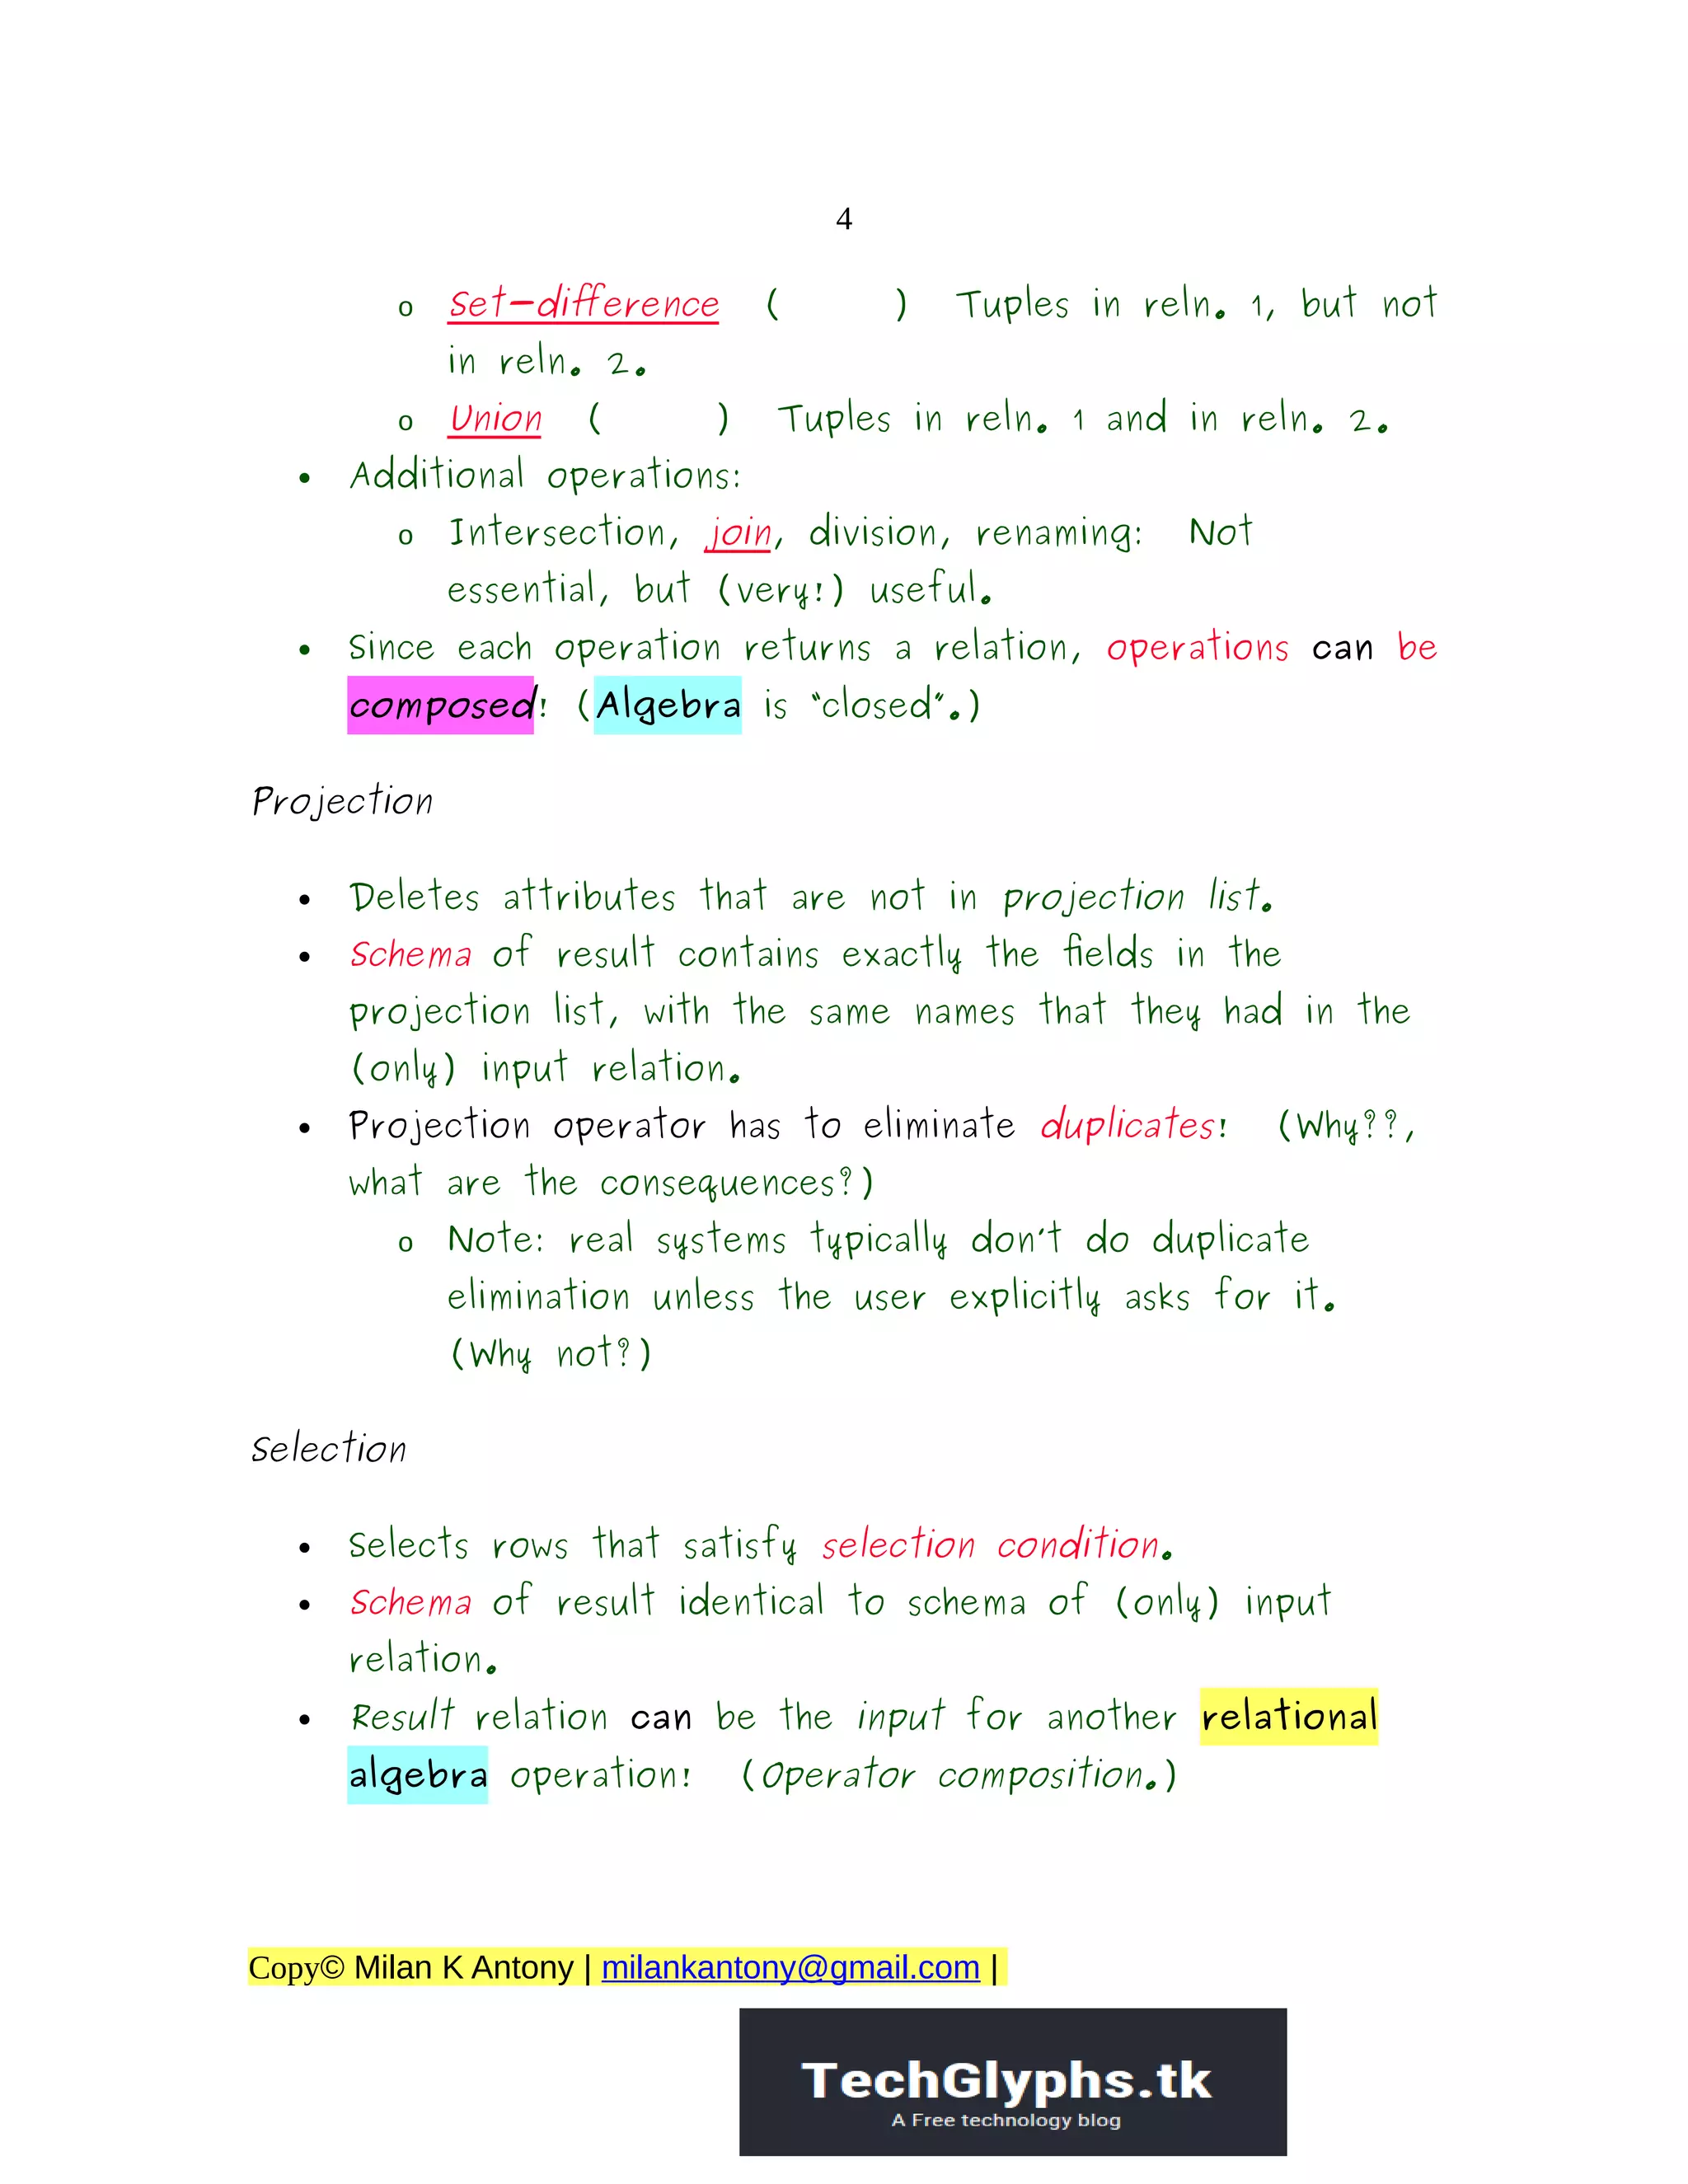 4
o Set-difference ( ) Tuples in reln. 1, but not
in reln. 2.
o Union ( ) Tuples in reln. 1 and in reln. 2.
• Additional operations:
o Intersection, join, division, renaming: Not
essential, but (very!) useful.
• Since each operation returns a relation, operations can be
composed! (Algebra is “closed”.)
Projection
• Deletes attributes that are not in projection list.
• Schema of result contains exactly the fields in the
projection list, with the same names that they had in the
(only) input relation.
• Projection operator has to eliminate duplicates! (Why??,
what are the consequences?)
o Note: real systems typically don’t do duplicate
elimination unless the user explicitly asks for it.
(Why not?)
Selection
• Selects rows that satisfy selection condition.
• Schema of result identical to schema of (only) input
relation.
• Result relation can be the input for another relational
algebra operation! (Operator composition.)
Copy© Milan K Antony | milankantony@gmail.com |
TechGlyphs.tk
A Free technology blog